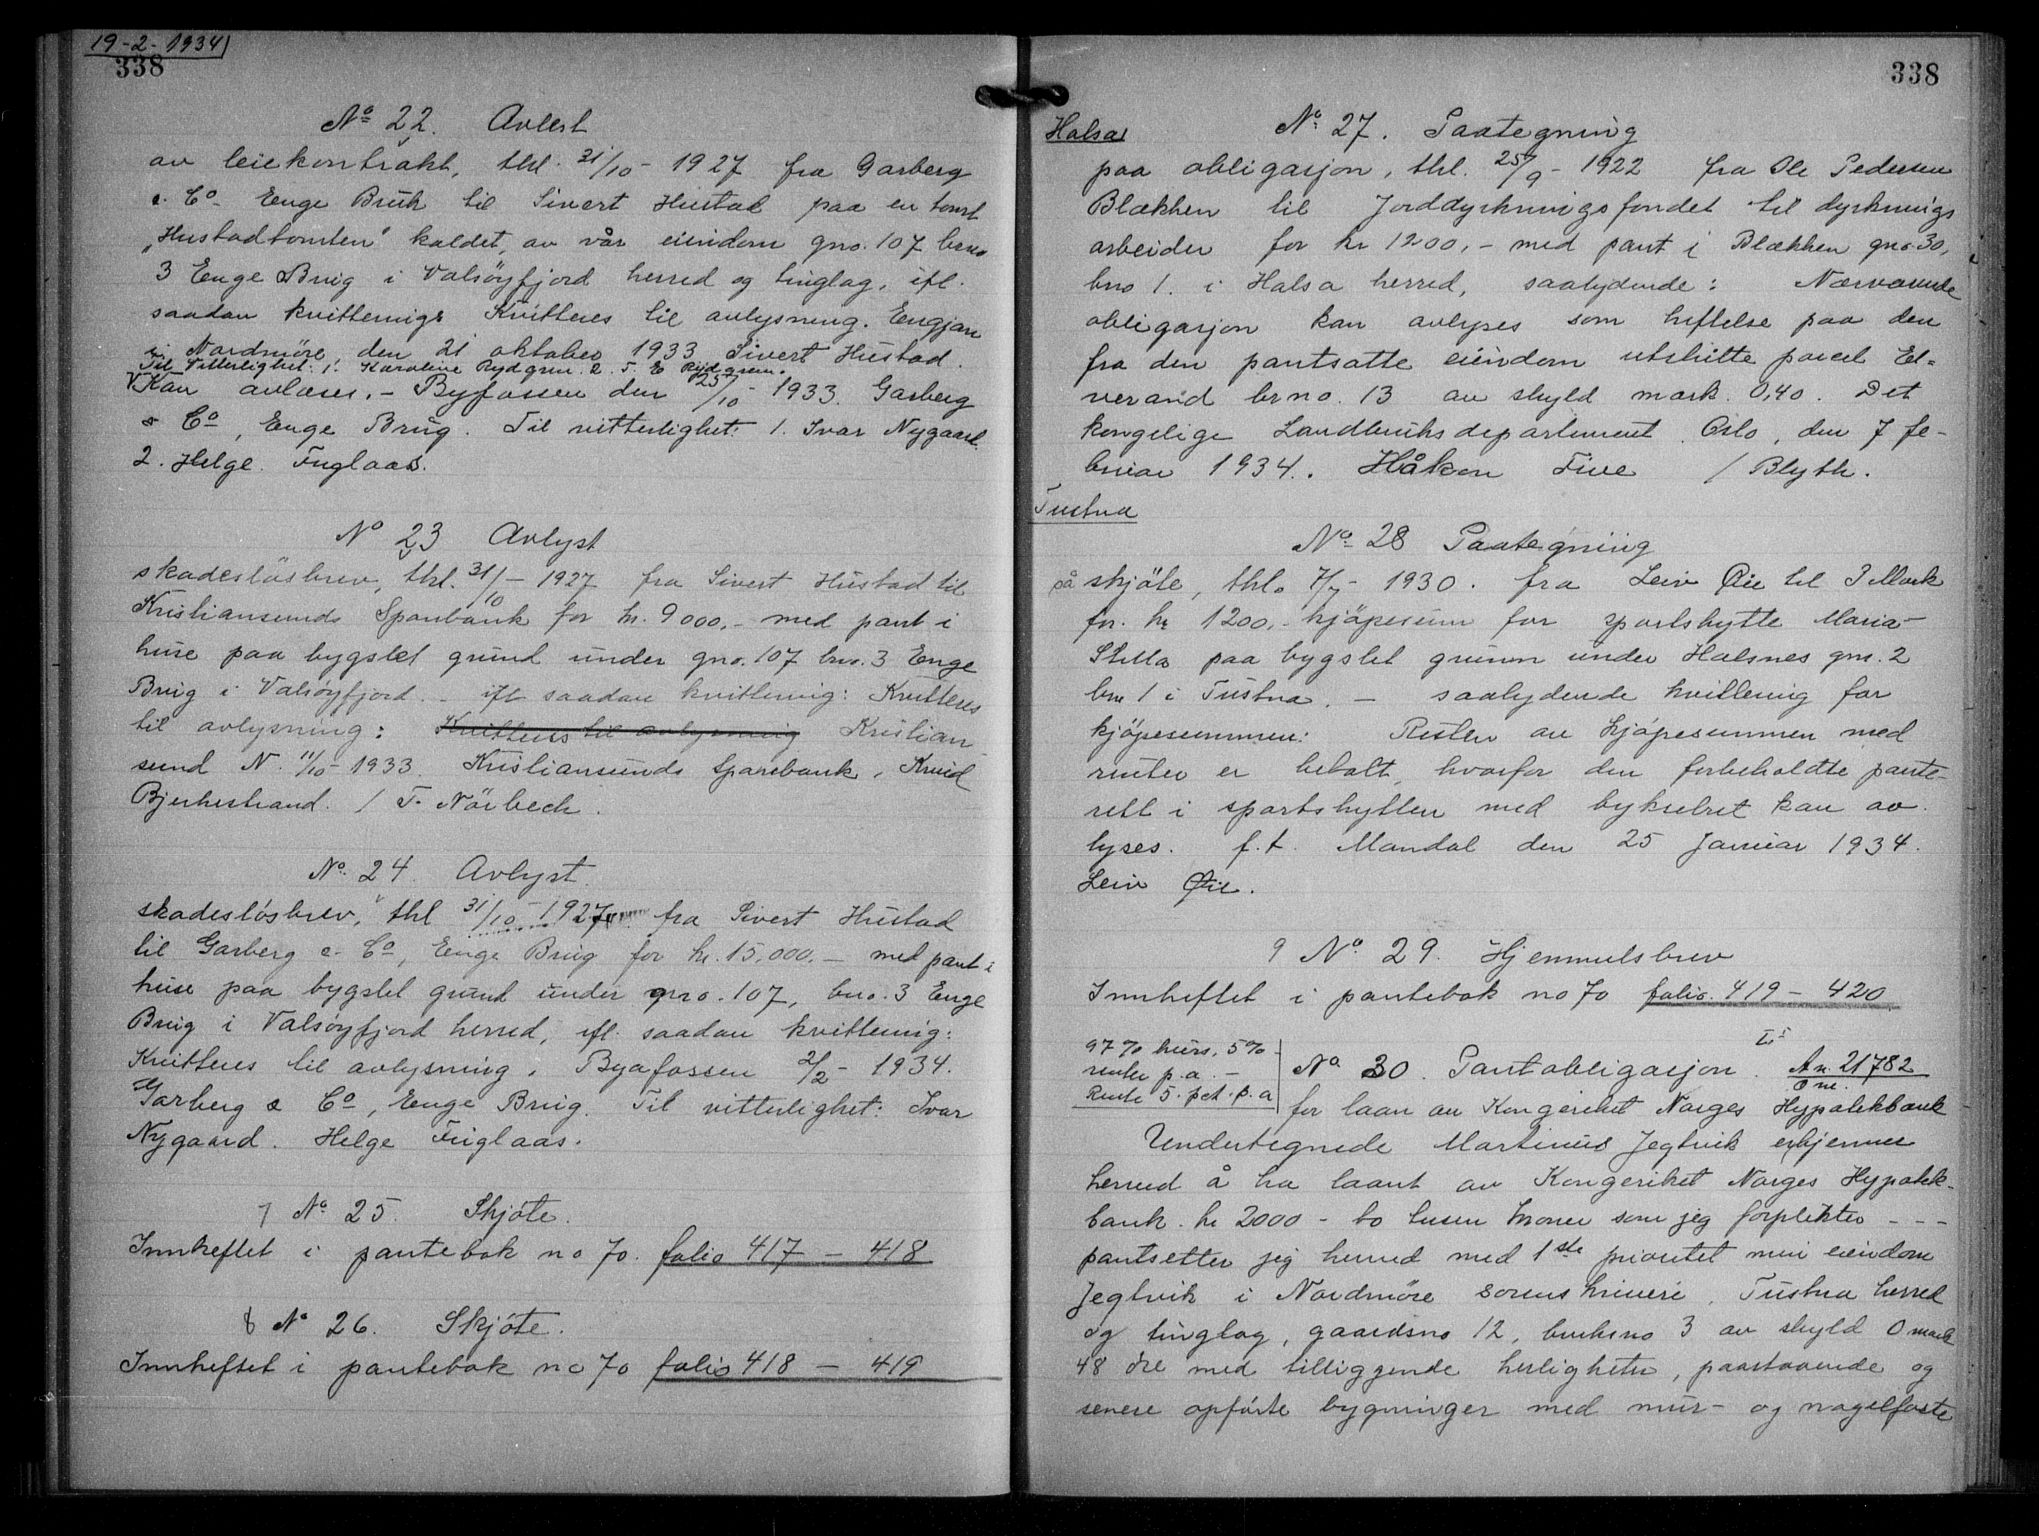 19-2-1934
338
No 22. Avlest
av leiekontrakt, thl. 31/10 - 1927 fra Garberg
& Co. Enge Bruk til Sivert Hustad paa en tomt
"Hustadtomten" kaldet, av vår eiendom gno. 107 bno
3 Enge Brug i Valsöyfjord herred og tinglag, ifl.
saadan kvittering: Kvitteres til avlysning. Engjan
i Nordmöre, den 21 oktober 1933 Sivert Hustad.
Til Vitterlighet: 1. Karoline Rydgren. 2. F. E Rydgren.
Kan avlæses. - Byfossen den 25/10 - 1933. Garberg
& Co, Enge Brug. Til vitterlighet: 1. Ivar Nygaard.
2. Helge Fuglaas.
No 23 Avlyst
skadeslösbrev, thl. 31/10 - 1927 fra Sivert Hustad til
Kristiansunds Sparebank for kr. 9000.- med pant i
huse paa bygslet grund under gno. 107 bno. 3 Enge
Brug i Valsöyfjord. - ifl saadan kvittering: Kvitteres
til avlysning: Kvitteres til avlysning Kristian
sund N. 11/10 - 1933. Kristiansunds Sparebank, Knud
Bjerkestrand. / T. Nörbech.
No. 24. Avlyst.
skadeslösbrev, thl 31/10 - 1927 fra Sivert Hustad
til Garberg & Co, Enge Brug for kr. 15,000.- med pant i
huse paa bygslet grund under gno. 107, bno. 3 Enge
Brug i Valsöyfjord herred, ifl. saadan kvittering:
Kvitteres til avlysning. Byafossen 2/2 - 1934.
Garberg & Co, Enge Brug. Til vitterlighet: Ivar
Nygaard. Helge Fuglaas.
7 No 25. Skjöte.
Innheftet i pantebok no 70. folio 417 - 418
8 No 26. Skjöte.
Innheftet i pantebok no 70 folio 418 - 419
338
Halsa
No. 27. Paategning
paa obligasjon, thl. 25/9 - 1922 fra Ole Pedersen
Blækken til Jorddyrkningsfondet til dyrknings
arbeider for kr 1200,- med pant i Blækken gno 30,
bno 1. i Halsa herred, saalydende: Nærværende
obligasjon kan avlyses som heftelse paa den
fra den pantsatte eiendom utskilte parcel El=
verand brno. 13 av skyld mark. 0,40. Det
kongelige Landbruksdepartement. Oslo, den 7 fe-
bruar 1934. Håkon Five / Blyth.
Tustna
No 28 Paategning
på skjöte, thl. 7/7 - 1930. fra Leiv Øie til P. Mork
for. kr 1200.- kjöpesum for sportshytte Maria-
Stella paa bygslet grunn under Halsnes gno. 2
bno 1 i Tustna. - saalydende kvittering for
kjöpesummen: Resten av kjöpesummen med
renter er betalt, hvorfor den forbeholdte pante-
rett i sportshytten med bykselret kan av
lyses. f.t. Mandal den 25 Januar 1934.
Leiv Øie.
9 No 29. Hjemmelsbrev
Innheftet i pantebok no 70 folio. 419 - 420
97 % kurs. 5%
renter p.a. -
Rente 5. pct. p. a
No 30. Pantobligasjon. An. 21782
for laan av Kongeriket Norges Hypotekbank
Undertegnede Martinus Jegtvik erkjenner
herved å ha laant av Kongeriket Norges Hypotek-
bank. kr 2000 - to tusen kroner som jeg forplikter - - -
pantsetter jeg herved med 1ste prioritet min eiendom
Jegtvik i Nordmöre sorenskriveri. Tustna herred
og tinglag, gaardsno 12, bruksno 3 av skyld 0 mark
48 öre med tilliggende herligheter, paastaaende og
senere opförte bygninger med mur- og nagelfaste